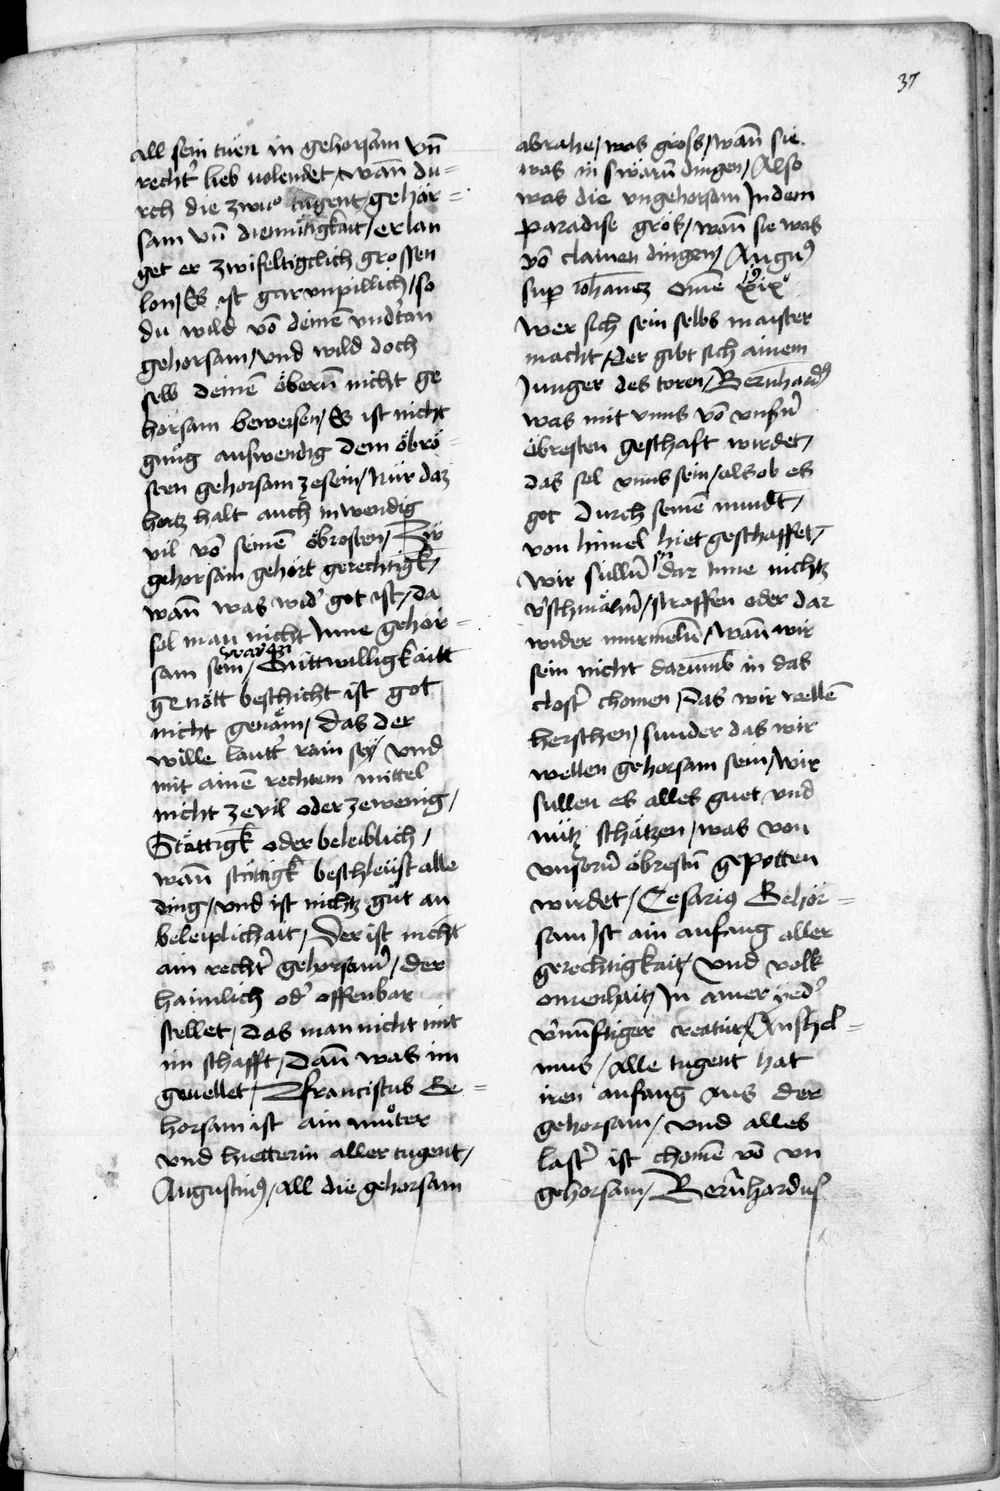 37
all sein tuen in gehorsam vn̄
rechtˀ lieb uolendet / wan̄ du-
rch die zwuo tugent / gehor=
sam vn̄ diemütigkait / erlan
get er zwifeltigclich grossen
lon / Es ist gar vnpillich / so
du wild vō deinē vndˀtan
gehorsam / vnd wild doch
selb deinē öberūn nicht ge
horsam beweisen / Es ist nicht
gnüg auswendig dem öbrö=
sten gehorsam ze sein / Nür daz
hertz halt auch inwendig
vil vō seinē öbrosten / Zw
gehorsam gehört gerechtigk̄ /
wan̄ was widˀ got ist / da
sol man nicht Inne gehor=
sam sein / warvm Guttwilligkaitt
genött beschicht ist got
nicht genäm / Das der
wille lauttˀ rain sey vnd
mit ainē rechtem mittel
nicht ze vil oder ze wenig /
Stättigk̄ oder beleiblich /
wan̄ stättigk̄ beschleüst alle
ding / vnd ist nichtz güt an
beleiplichait / Der ist nicht
ain rechtˀ gehorsamˀ / der
haimlich odˀ offenbar
stellet / das man nicht mit
im schafft / Dan̄ was im
geuellet / Franciscus Ge=
horsam ist ain muoter
vnd huetterin aller tugent /
Augustinꝰ / All die gehorsam
abrahe / was gross / wan̄ sie
was in swärn̄ dingen / Also
was die vngehorsam In dem
paradise gros / wan̄ sie was
vō clainen dingen / Augꝰ
sup̄ Iohannez Omē xix°
Wer sich sein selbs maister
macht / Der gibt sich ainem
Junger des toren / Bernhardꝰ
was mit vnns vō vnsn̄
öbresten geschaft wirdet /
das sol vnns sein / als ob es
got durch seinē mundt /
von himel hiet geschaffet /
Wir sulln̄ vn dar Inne nichtz
vˀschmähn̄ / straffen oder dar
wider murmeln̄ / Wan̄ wir
sein nicht darumb in das
clostˀ chomen / Das wir wellē
herschen / sunder das wir
wellen gehorsam sein / wir
sullen es alles guet vnd
nütz schätzen / was von
vnsern̄ öbrestn̄ gepotten
wirdet / Cesariꝰ Gehor=
sam Ist ain anfang aller
gerechtigkait / vnd volk
omenhait / In ainer yedˀ
vˀnünftiger creatur / Anshel=
mus / Alle tugent hat
iren anfang Aus der
gehorsam / vnd alles
lastˀ ist chomē vō vn
gehorsam / Bernhardus